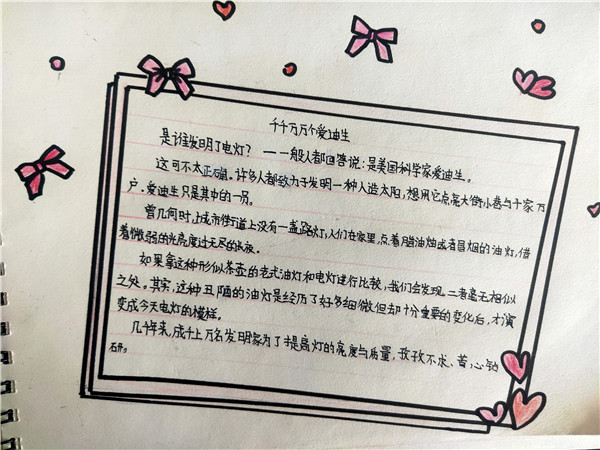 千千万万个爱迪生
是谁发明了电灯？一一般人都回答说：是美国科学家爱迪生。
这可不太正确。许多人都致力于发明一种人造太阳，想用它点亮大街小巷与千家万
户。爱迪生只是其中的一员。
曾几何时，城市街道上没有一盏路灯，人们在家里，点着脂油烛或者冒烟的油灯，借
着微弱的光亮度过无尽的长夜。
如果拿这种形似茶壶的老式油灯和电灯进行比较，我们会发现二者毫无相似
之处。其实，这种丑陋的油灯是经历了好多细微但却十分重要的变化后，才演
变成今天电灯的模样。
几千年来，成千上万名发明家为了提高灯的亮度与质量，孜孜不求、苦心钻
研。